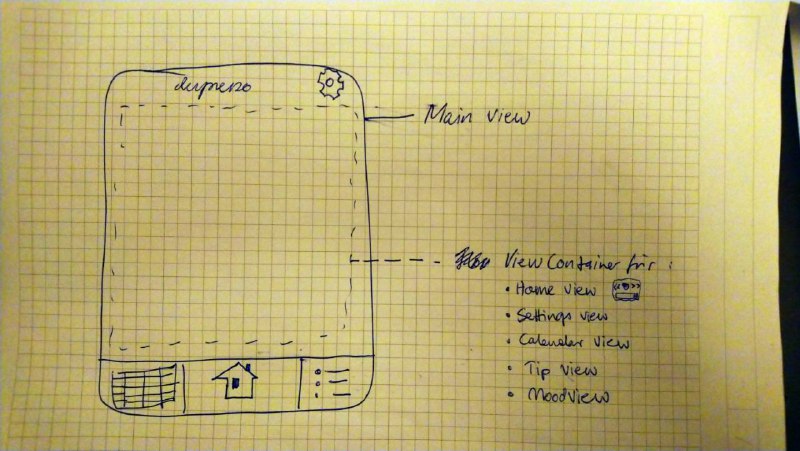 Main View
View Container für :
• Home View
• Settings view
• Calendar View
• Tip View
• MoodView